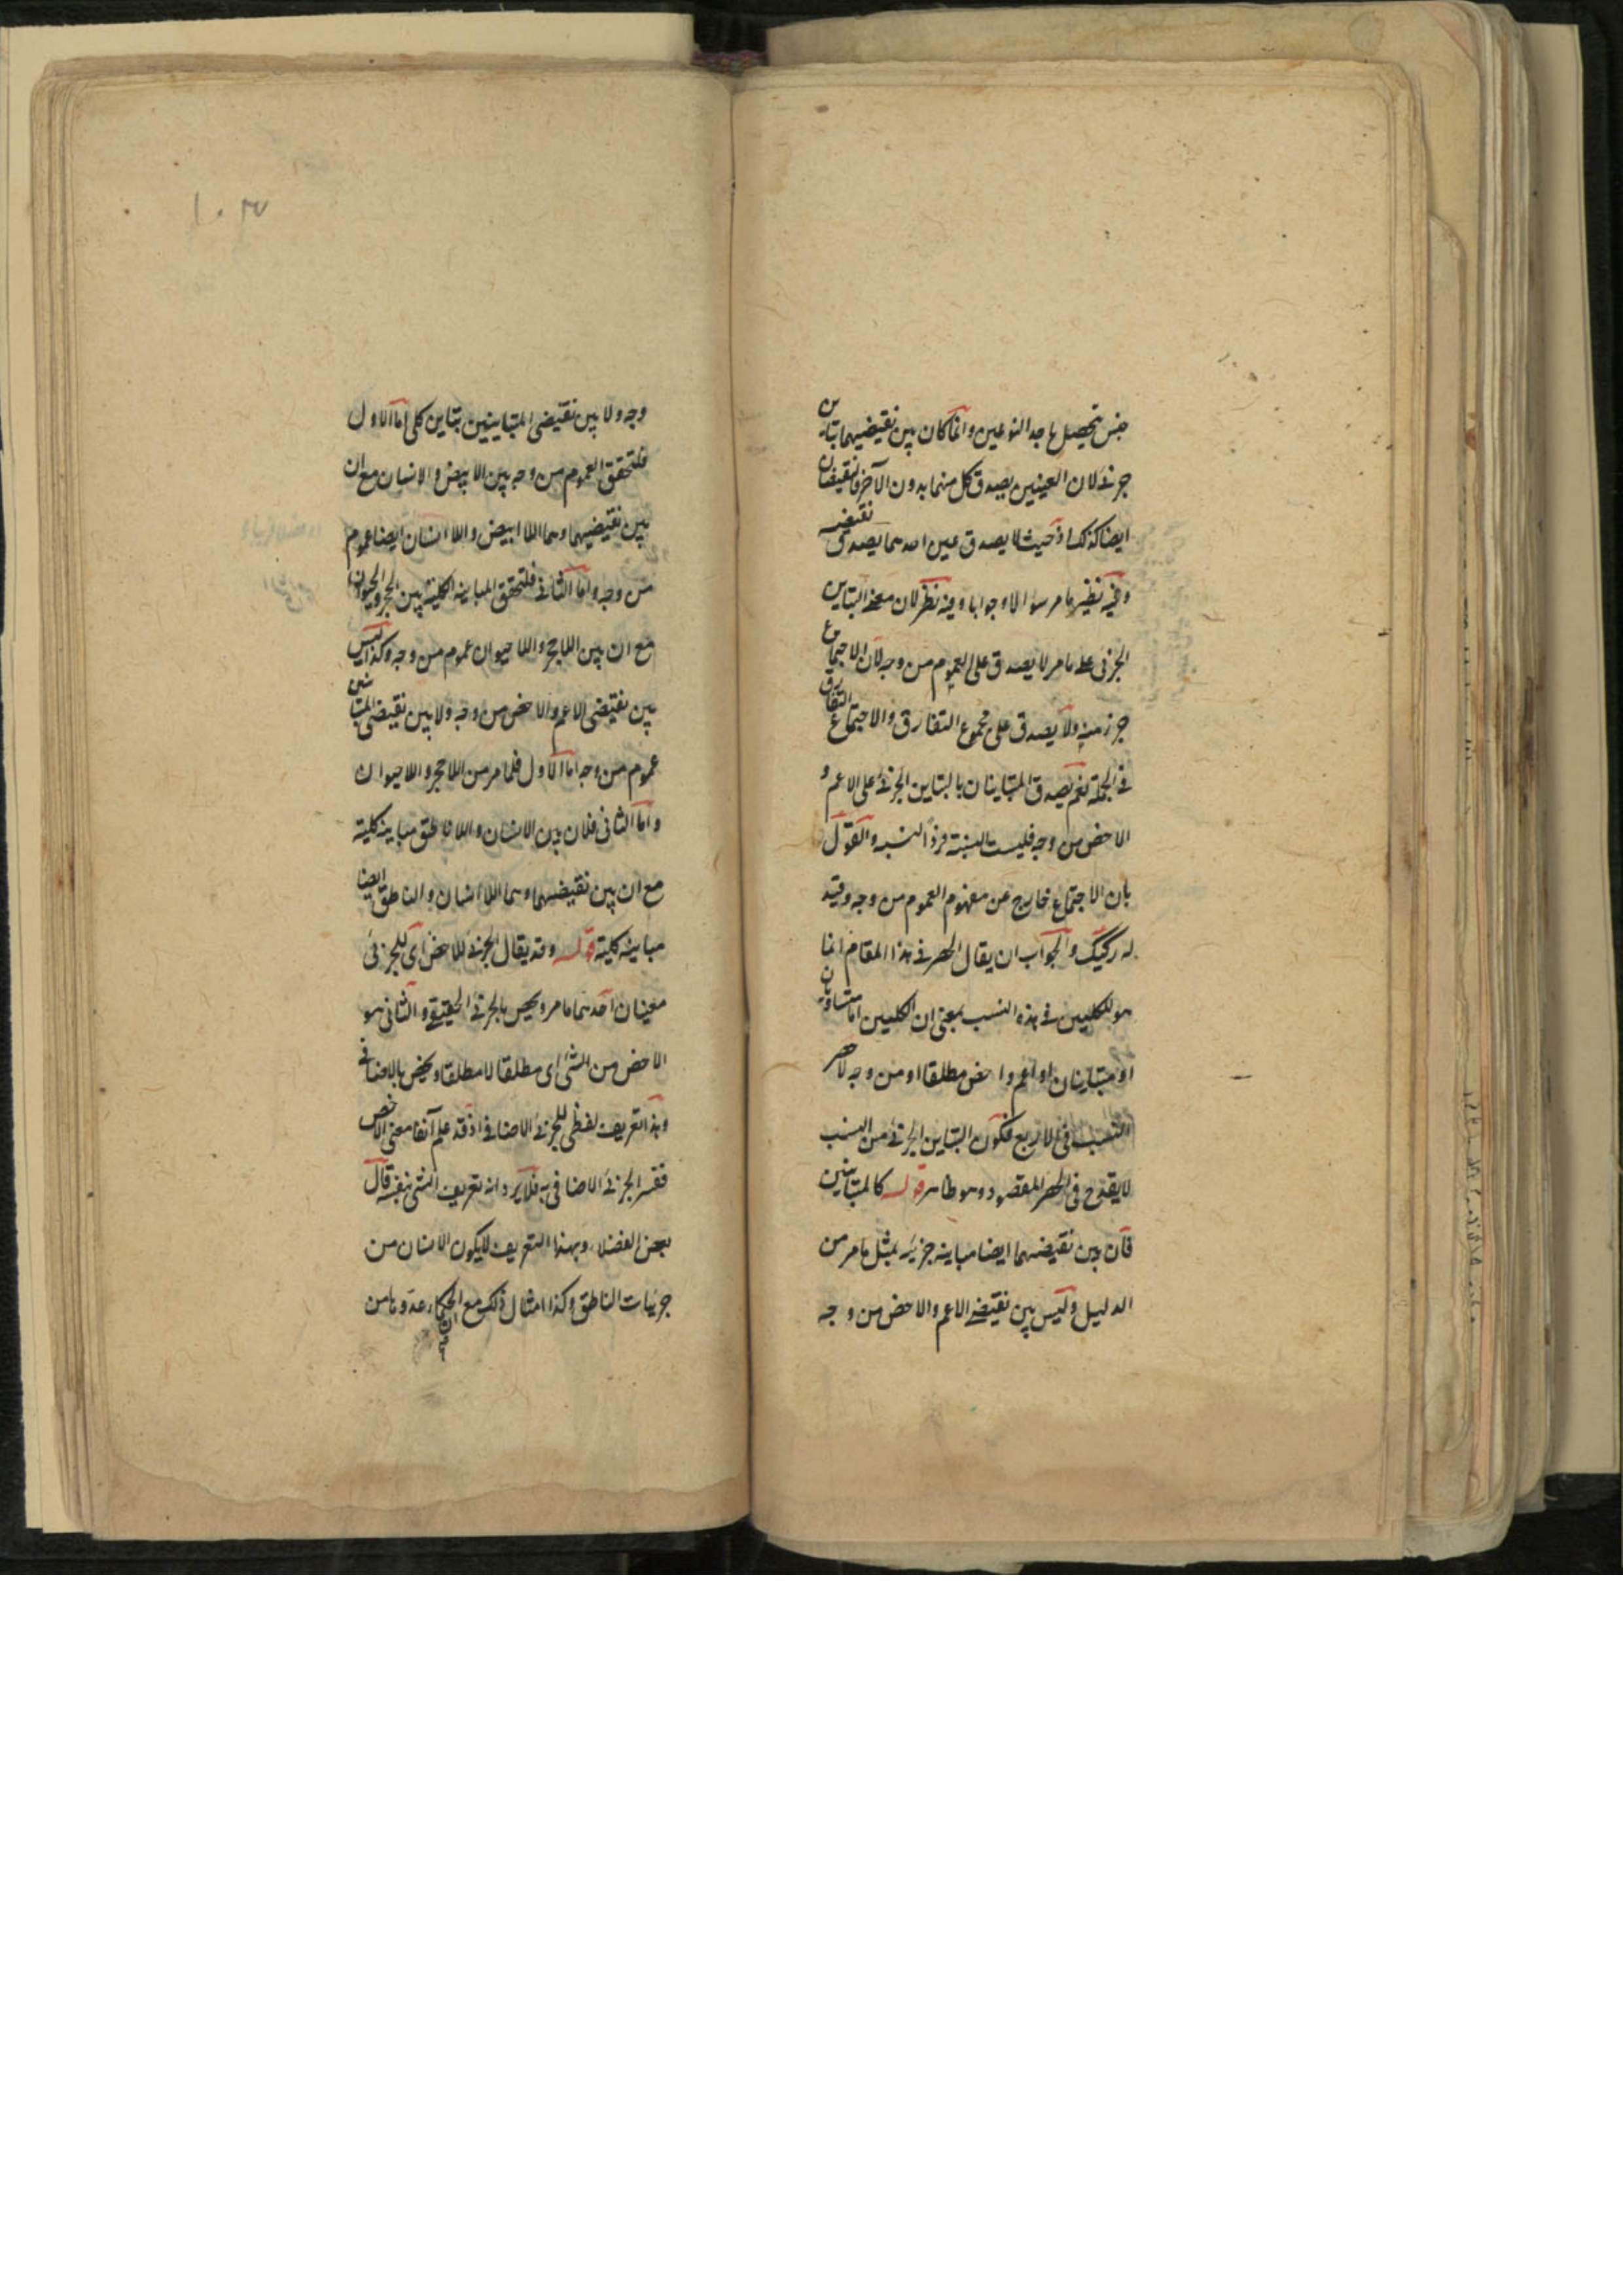 جنس تحصيل باحد النوعين وانما كان بين نقيضيهما تباين
جزئى لان العينين يصدق كل منهما بدون الآخر فالنقيضان
ايضا كذلك اذ حيث لا يصدق عين احدهما يصدق نقيضه
وفيه نظير ما مر سؤالا وجوابا وفيه نظر لان معنى التباين
الجزئى على ما مر لا يصدق على العموم من وجه لان الاجتماع
جزء منه ولا يصدق على مجموع التفارق والاجتماع التفارق
فى الجملة نعم يصدق المتباينان بالتباين الجزئى على الاعم و
الاخص من وجه فليست النسبة فرد النسبه والقول
بان الاجتماع خارج عن مفهوم العموم من وجه وقيد
له ركيك والجواب ان يقال الحصر فى هذا المقام انما
هو للكليين فى هذه النسب بمعنى ان الكليين اما متساويان
او متباينان او اعم واخص مطلقا او من وجه لا حصر
النسب فى الاربع فكون التباين الجزئى من النسب
لا يقدح فى الحصر المقصود وهو ظاهر قوله كالمتباينين
فان بين نقيضهما ايضا مباينه جزئيه بمثل ما مر من
الدليل وليس بين نقيضى الاعم والاخص من وجه
١٠٣
وجه ولا بين نقيضى المتباينين تباين كلى اما الاول
فلتحقق العموم من وجه بين الابيض والانسان مع ان
بين نقيضيهما وهما اللاابيض واللاانسان ايضا عموم
من وجه واما الثانى فلتحقق المباينه الكلية بين الحجر والحيوان
مع ان بين اللاحجر واللاحيوان عموم من وجه وكذا ليس
بين نقيضى الاعم والاخص من وجه ولا بين نقيضى المتباينين
عموم من وجه اما الاول فلما مر من اللاحجر واللاحيوان
واما الثانى فلان بين الانسان واللاناطق مباينه كلية
مع ان بين نقيضيهما وهما اللاانسان والناطق ايضا
مباينه كلية قوله وقد يقال الجزئى للاخص اى للجزئى
معنيان احدهما ما مر ويخص بالجزئى الحقيقى والثانى هو
الاخص من الشئ اى مطلقا لا مطلقا ويخص بالاضافى
وهذا تعريف لفظى للجزئى الاضافى اذ قد علم آنفا معنى الاخص
ففسر الجزئى الاضافى به فلا يرد انه تعريف الشئ بنفسه قال
بعض الفضلاء وبهذا التعريف لا يكون الانسان من
جزئيات الناطق وكذا امثال ذلك مع ان الحكماء عدوها من